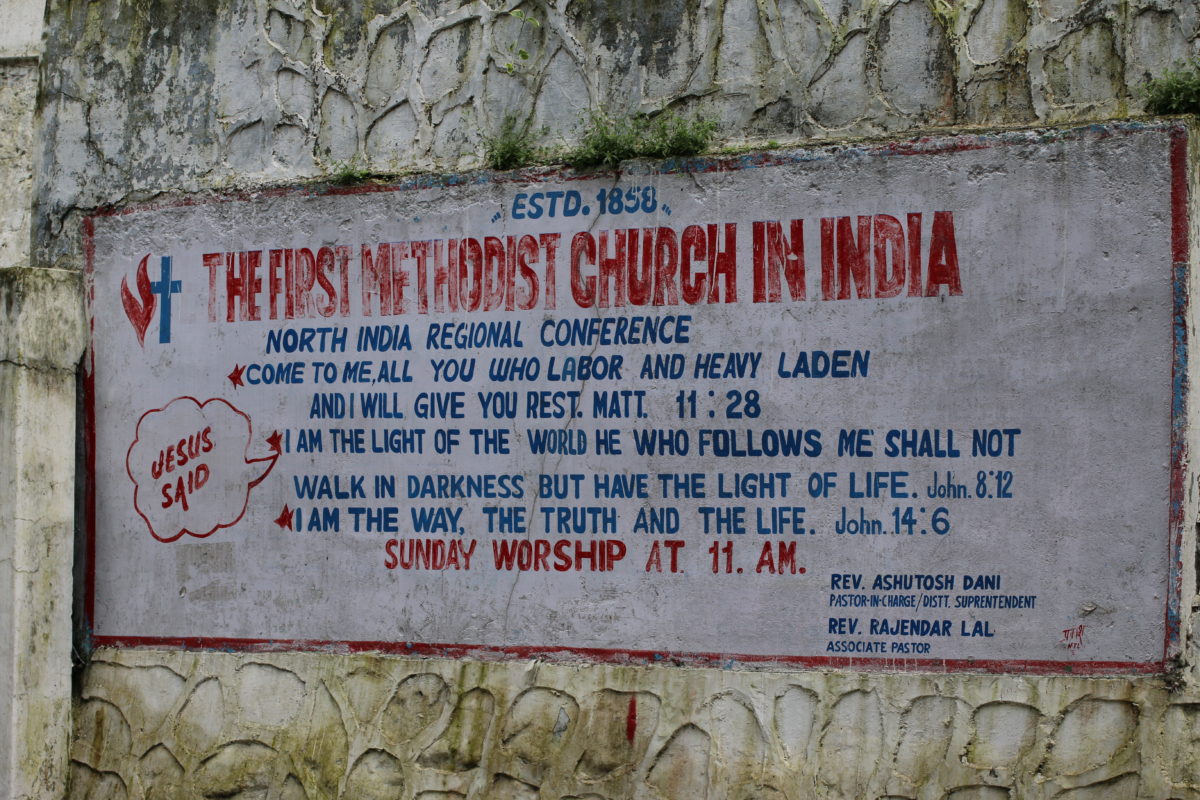 ESTD. 1858
THE FIRST METHODIST CHURCH IN INDIA
NORTH INDIA REGIONAL CONFERENCE
COME TO ME, ALL YOU WHO LABOR AND HEAVY LADEN
AND I WILL GIVE YOU REST. MATT. 11:28
JESUS
SAID
I AM THE LIGHT OF THE WORLD HE WHO FOLLOWS ME SHALL NOT
WALK IN DARKNESS BUT HAVE THE LIGHT OF LIFE. John. 8:12
I AM THE WAY, THE TRUTH AND THE LIFE. John. 14:6
SUNDAY WORSHIP AT 11. AM.
REV. ASHUTOSH DANI
PASTOR-IN-CHARGE/DISTT. SUPRENTENDENT
REV. RAJENDAR LAL
ASSOCIATE PASTOR
NTL